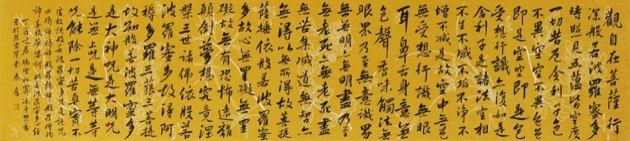 觀自在菩薩行
深般若波羅蜜多
時照見五蘊皆空度
一切苦厄舍利子色
不異空空不異色
色即是空空即是色
受想行識亦復如是
舍利子是諸法空相
不生不滅不垢不淨不
增不減是故空中無色
無受想行識無眼
耳鼻舌身意無
色聲香味觸法無
眼界乃至無意識界
無無明亦無無明盡乃至
無老死亦無老死盡
無苦集滅道無智亦
無得以無所得故菩提
薩埵依般若波羅蜜
多故心無罣礙無罣
礙故無有恐怖遠離
顛倒夢想究竟涅
槃三世諸佛依般若
波羅蜜多故得阿
耨多羅三藐三菩提
故知般若波羅蜜多
是大神咒是大明咒
是無上咒是無等等
咒能除一切苦真實不
虛故說般若波羅蜜多咒即說咒